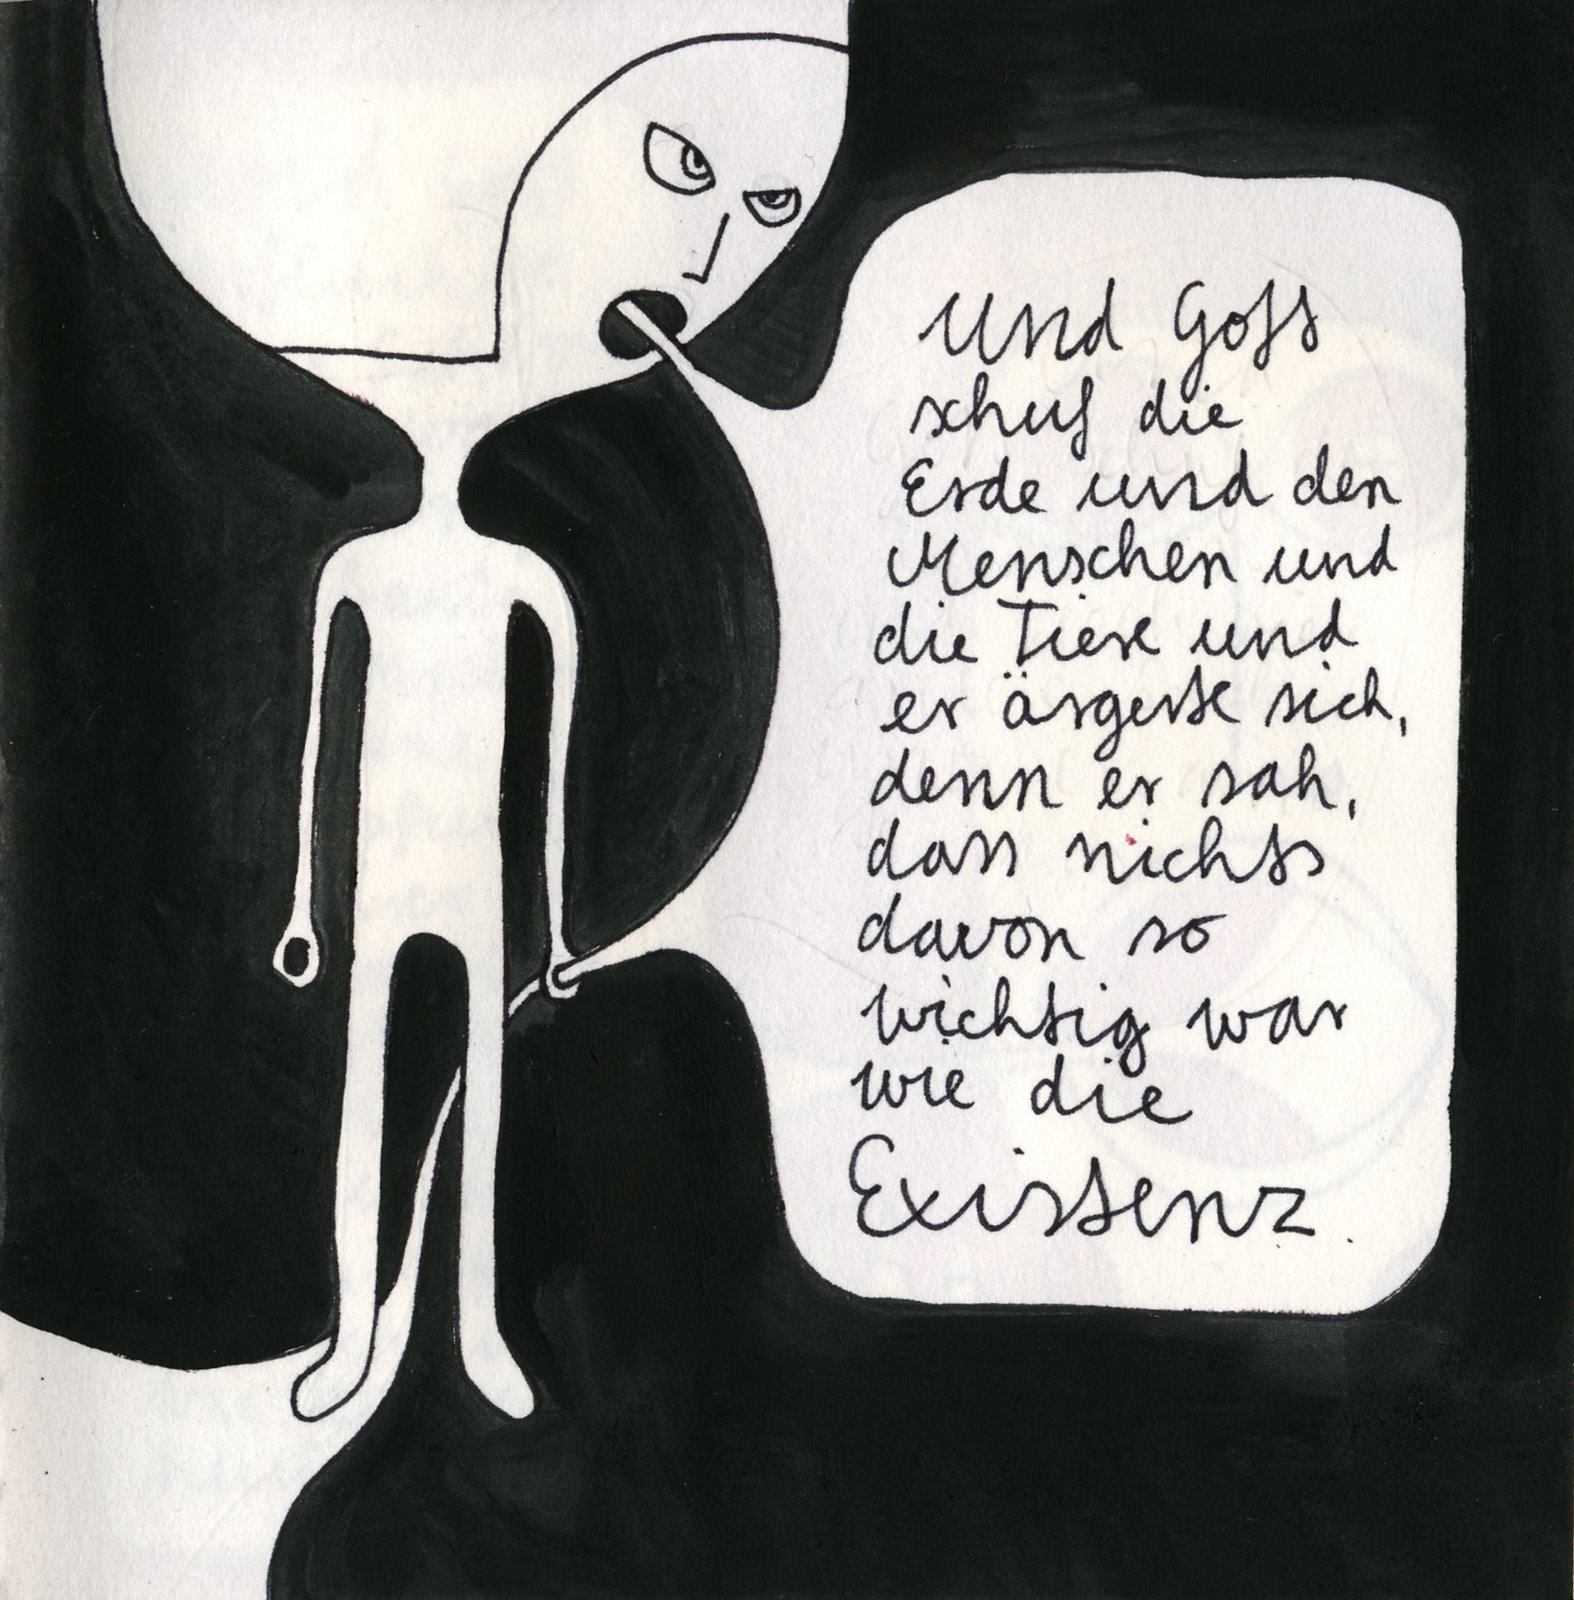 Und Gott
schuf die
Erde und den
Menschen und
die Tiere und
er ärgerte sich,
denn er sah,
dass nichts
davon so
wichtig war
wie die
Existenz.